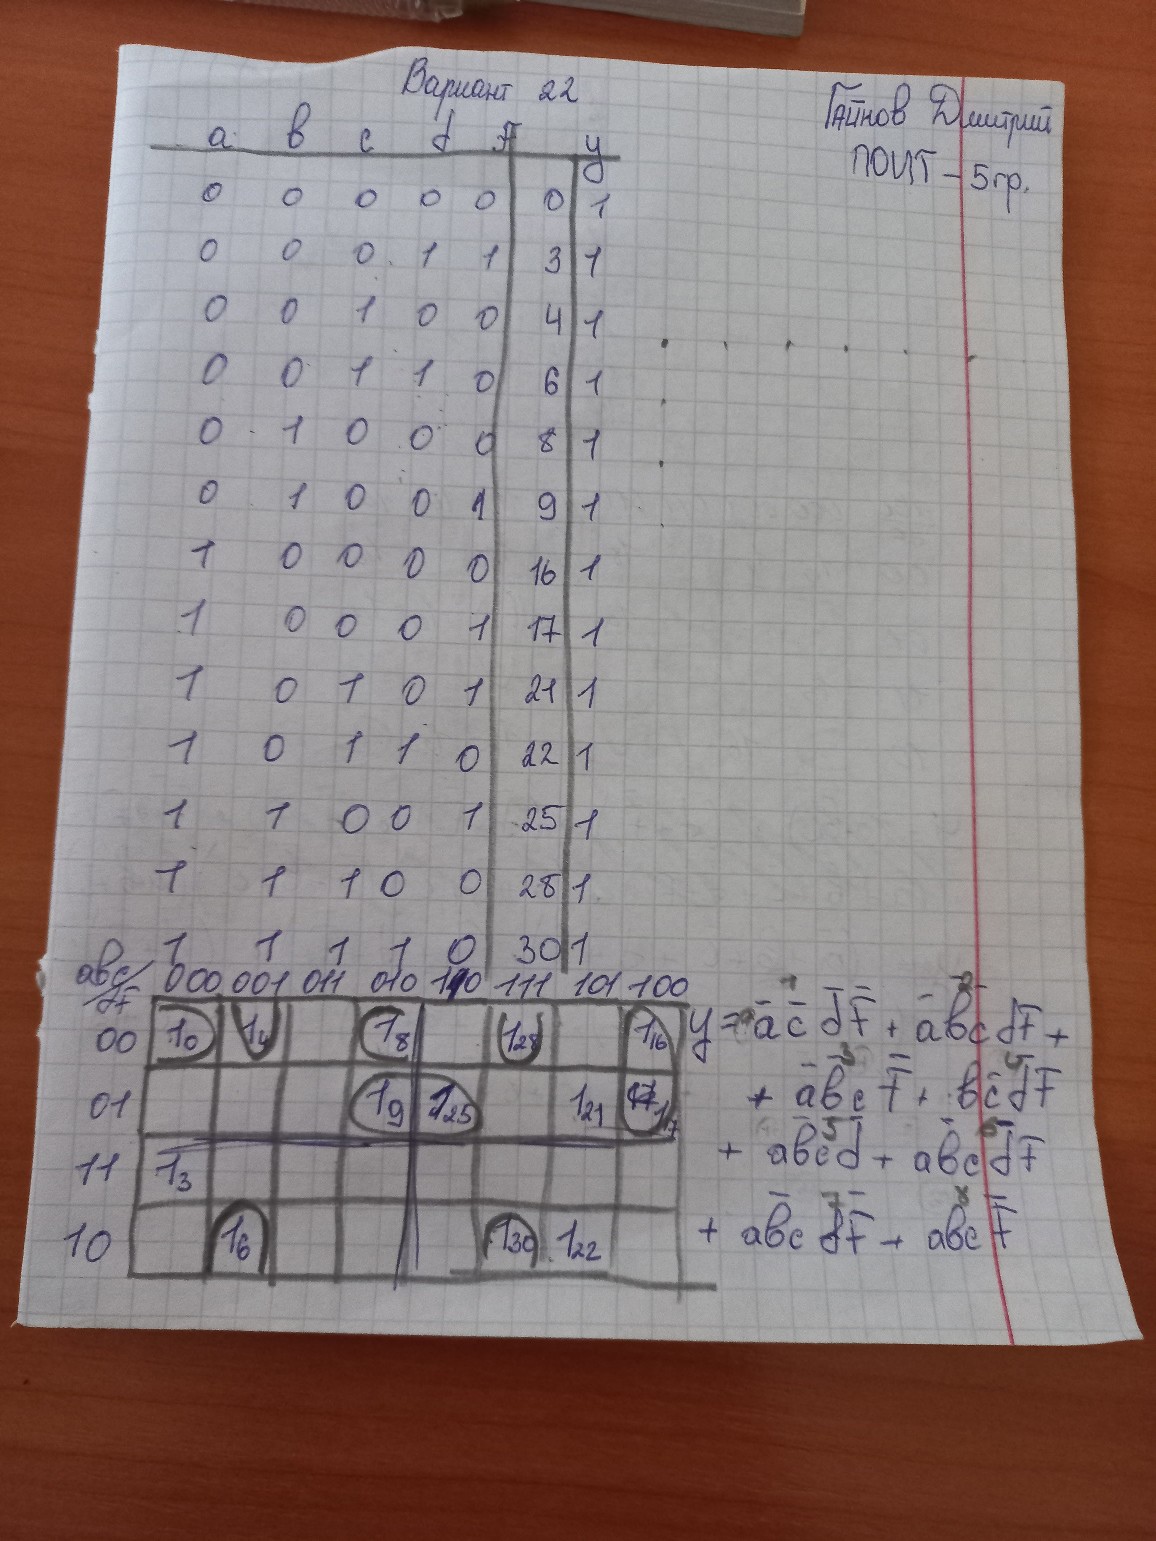 Вариант 22
Гайнов Дмитрий
ПОИТ - 5гр.
a b c d f y
0 0 0 0 0 0 1
0 0 0 1 1 3 1
0 0 1 0 0 4 1
0 0 1 1 0 6 1
0 1 0 0 0 8 1
0 1 0 0 1 9 1
1 0 0 0 0 16 1
1 0 0 0 1 17 1
1 0 1 0 1 21 1
1 0 1 1 0 22 1
1 1 0 0 1 25 1
1 1 1 0 0 28 1
1 1 1 1 0 30 1
abc/df 000 001 011 010 110 111 101 100
00 1₀ 1₄ 1₈ 1₂₈ 1₁₆
01 1₉ 1₂₅ 1₂₁ 1₁₇
11 1₃
10 1₆ 1₃₀ 1₂₂
y = a̅ c̅ d̅ f̅ + a̅ b̅ c̅ d f +
+ a̅ b̅ c f̅ + b c̅ d̅ f
+ a b̅ c̅ d̅ + a b̅ c d̅ f
+ a b̅ c d f̅ + a b c f̅